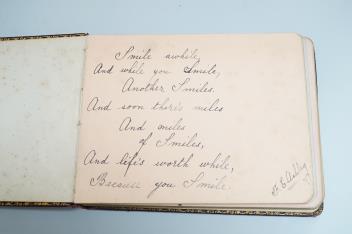 Smile awhile,
And while you Smile,
Another Smiles.
And soon there's miles
And miles
of Smiles,
And life's worth while,
Because you Smile.